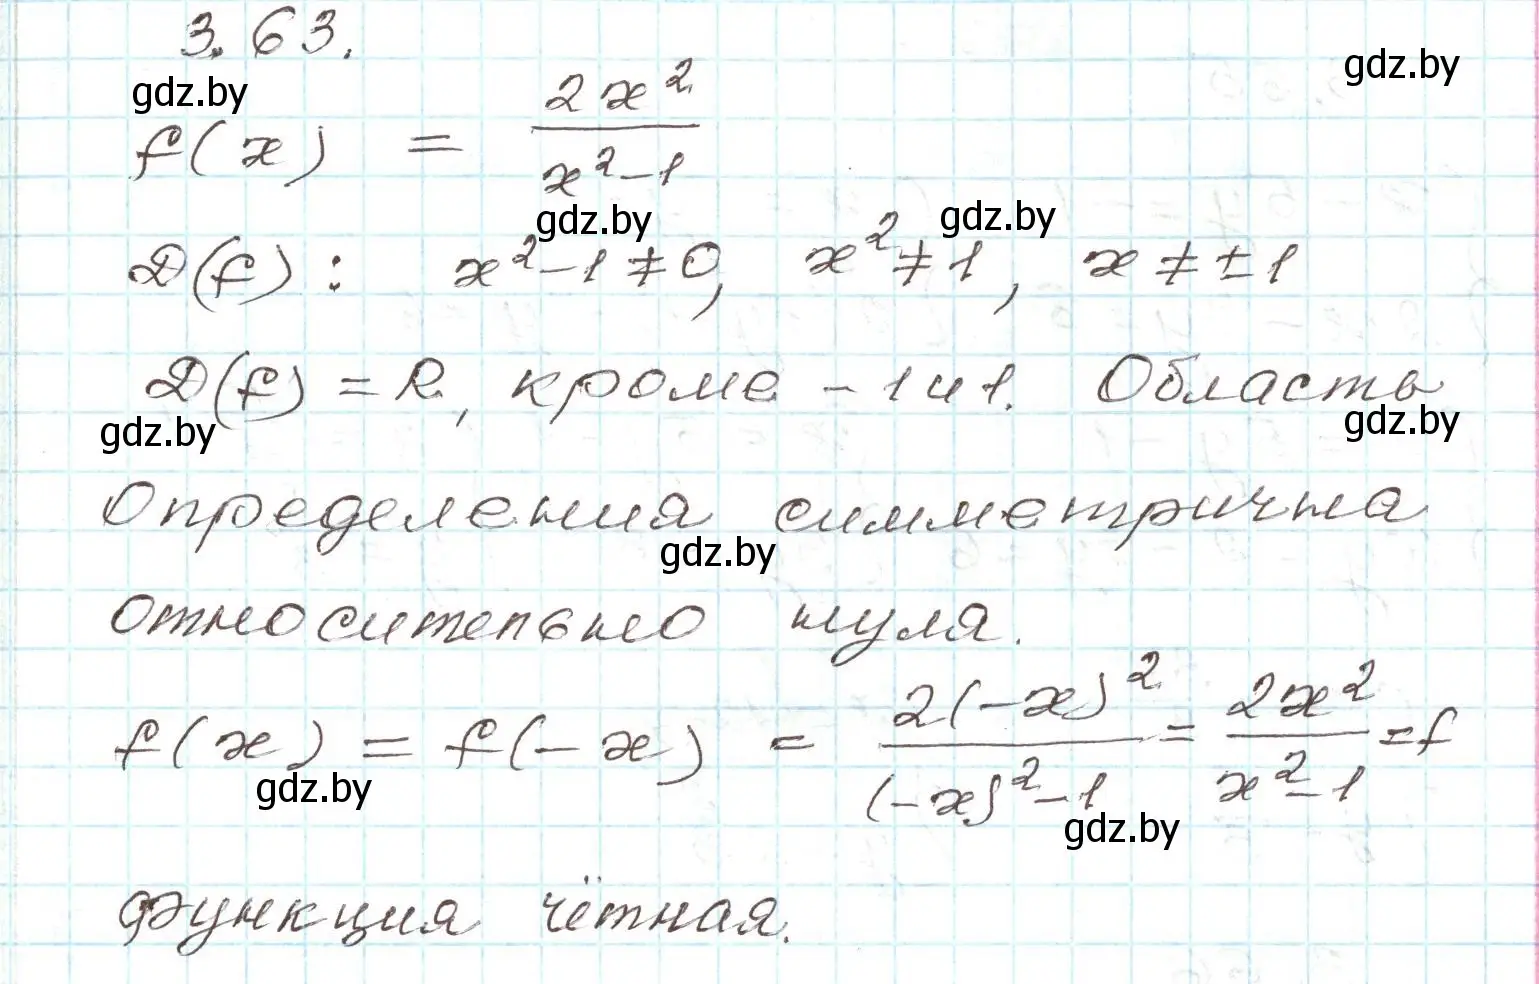 3.63.
gdz.by
gdz.by
f(x) = 2x²/(x²-1)
gdz.by gdz.by
D(f): x²-1≠0, x²≠1, x≠±1
D(f) = R, кроме -1 и 1. Область
gdz.by gdz.by
Определения симметрична
gdz.by
относительно нуля.
f(x) = f(-x) = 2(-x)²/((-x)²-1) = 2x²/(x²-1) = f
gdz.by gdz.by
функция чётная.